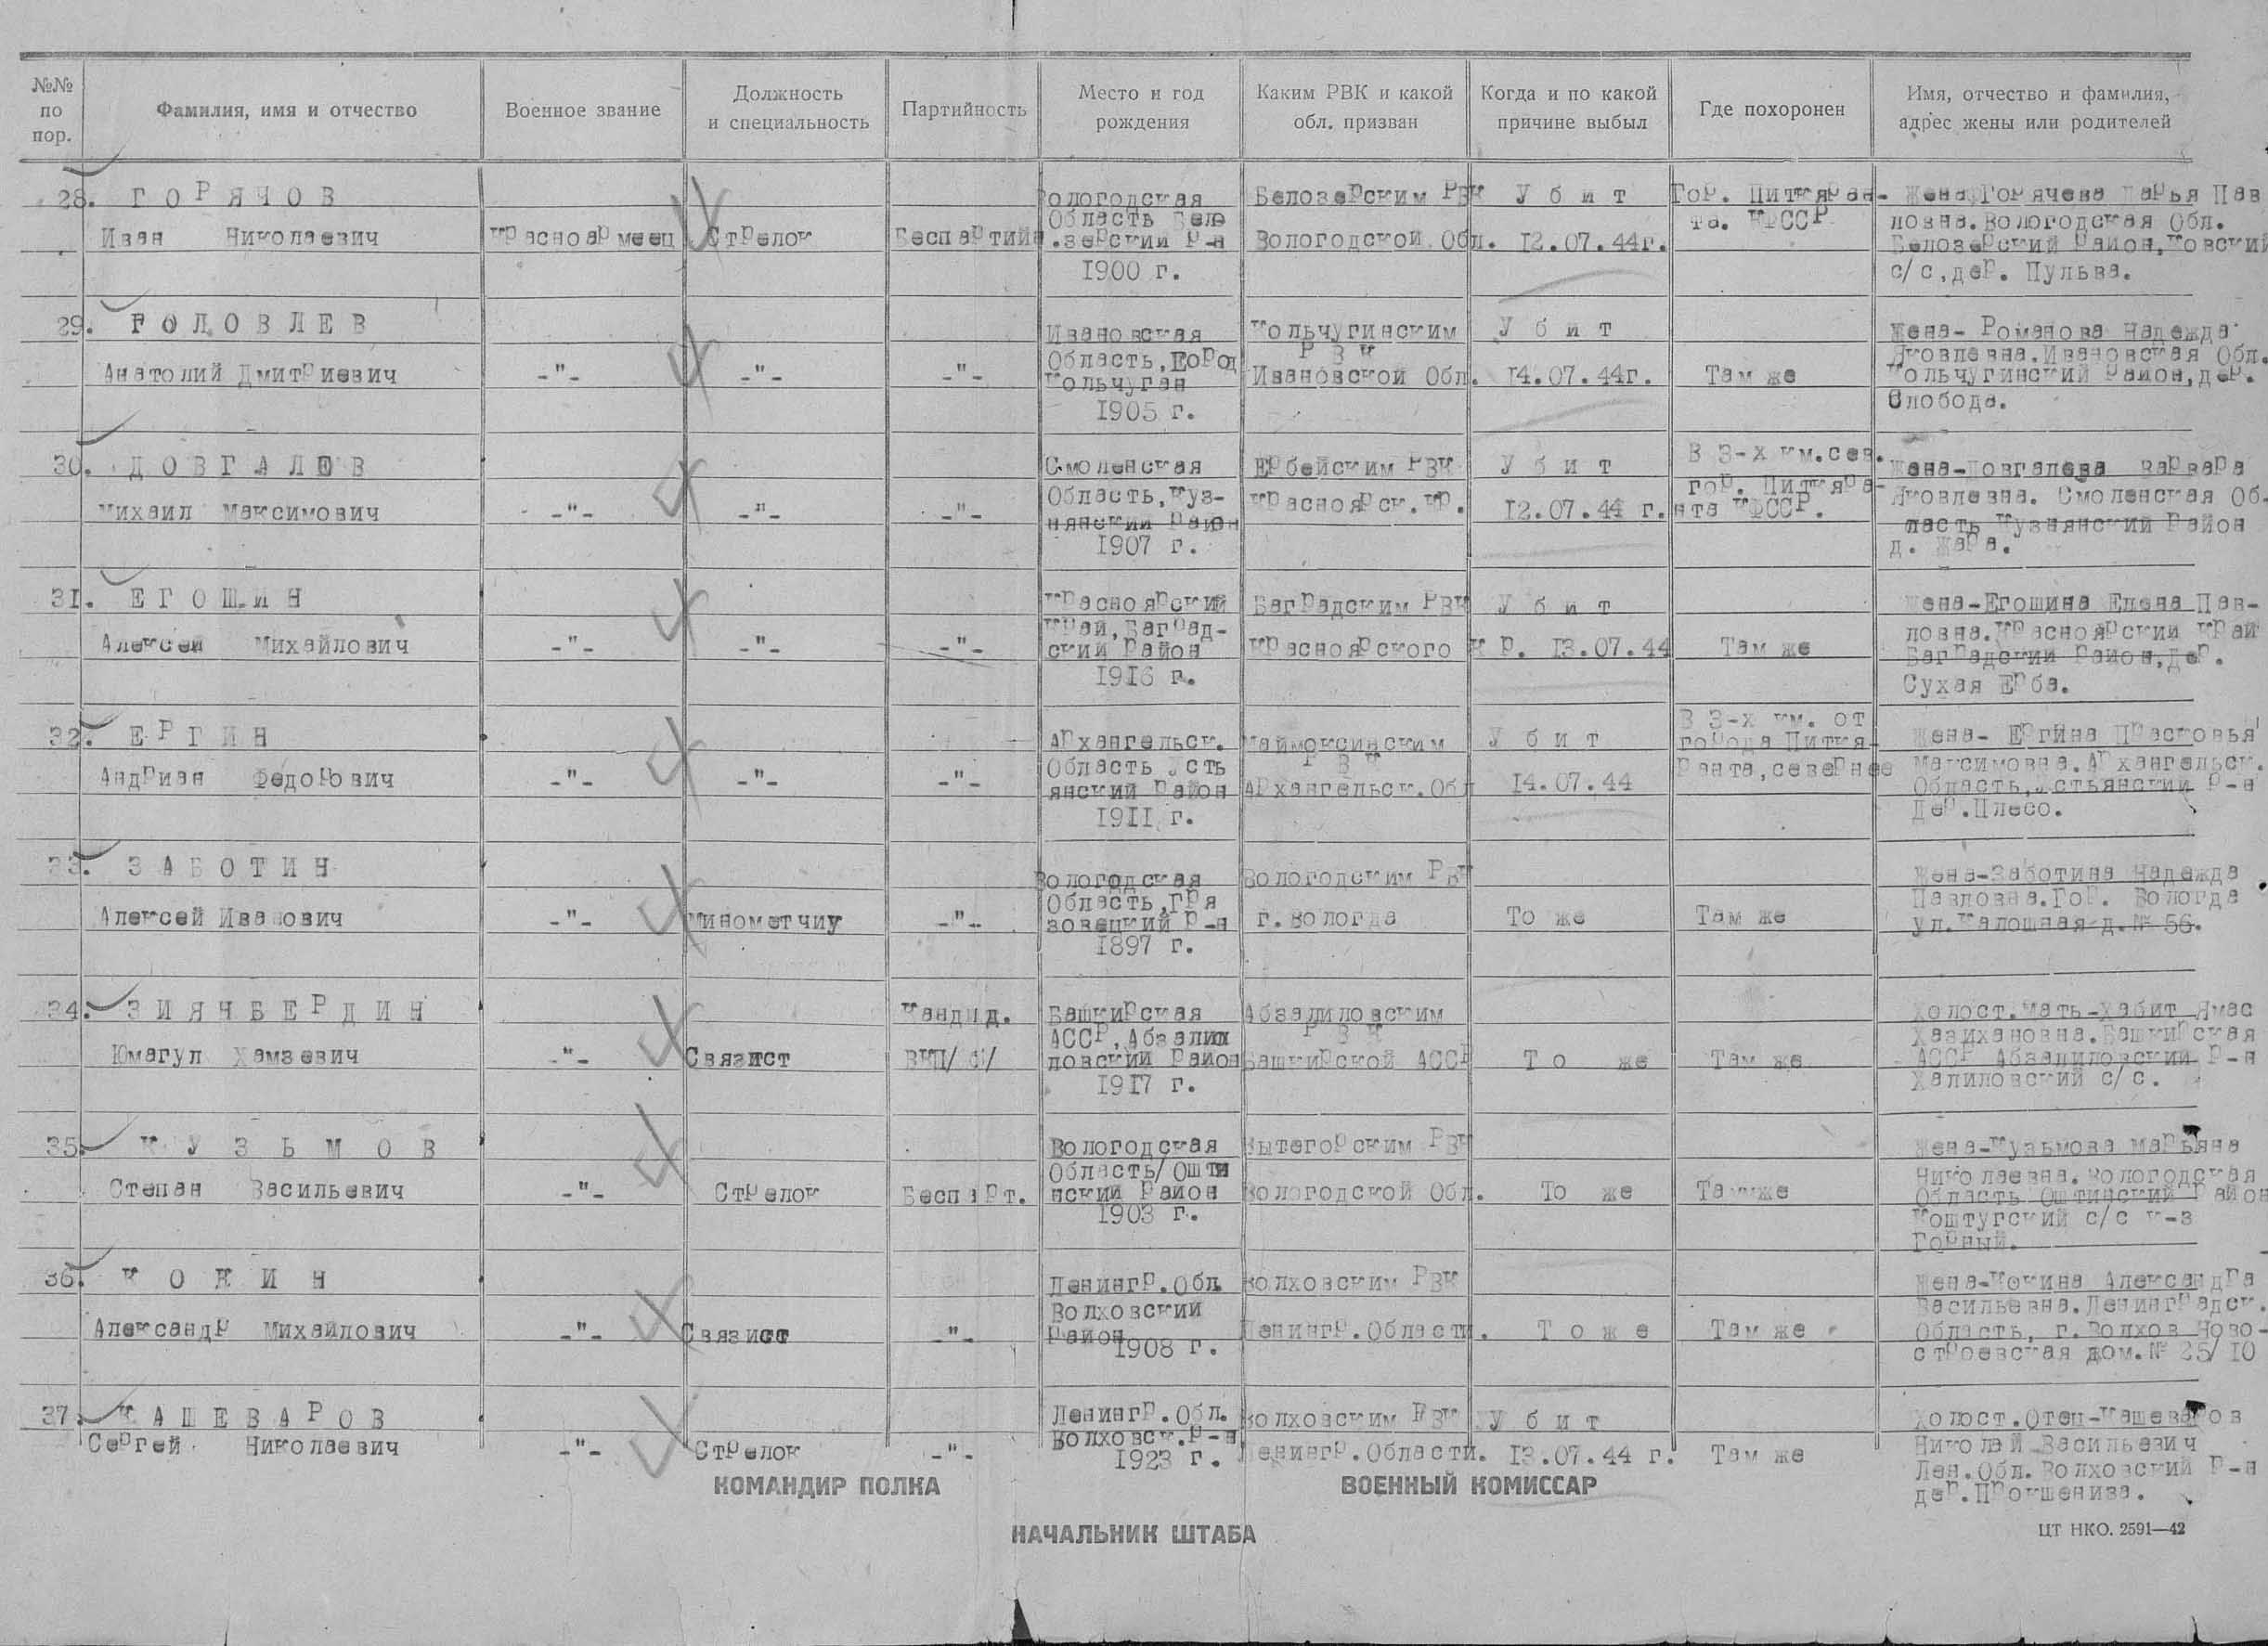 №№ по пор.
Фамилия, имя и отчество
Военное звание
Должность и специальность
Партийность
Место и год рождения
Каким РВК и какой обл. призван
Когда и по какой причине выбыл
Где похоронен
Имя, отчество и фамилия, адрес жены или родителей
28. ГОРЯЧОВ
Иван Николаевич
Красноармеец
Стрелок
Беспартийн
Вологодская
Область Бело
.зерский Р-н
1900 г.
Белозерским РВК
Вологодской Обл.
Убит
12.07.44г.
Гор. Питкяран-
та. КФССР
Жена Горячева Дарья Пав
ловна. Вологодская Обл.
Белозерский Район, Ковский
с/с, дер. Пульва.
29. ГОЛОВЛЕВ
Анатолий Дмитриевич
-"-
-"-
-"-
Ивановская
Область, Город
Кольчуган
1905 г.
Кольчугинским
РВК
Ивановской Обл.
Убит
14.07.44г.
Там же
Жена- Романова Надежда
Яковлевна. Ивановская Обл.
Кольчугинский Район, дер.
Слобода.
30. ДОВГАЛЕВ
Михаил Максимович
-"-
-"-
-"-
Смоленская
Область, Куз-
нянский Район
1907 г.
Ербейским РВК
Красноярск. Кр.
Убит
12.07.44 г.
В 3-х км. сев.
гор. Питкяра-
нта КФССР.
Жена-Довгалева Варвара
Яковлевна. Смоленская Об-
ласть Кузнянский Район
д. Жара.
31. ЕГОШИН
Алексей Михайлович
-"-
-"-
-"-
Красноярский
Край, Баград-
ский Район
1916 г.
Баградским РВК
Красноярского К Р.
Убит
13.07.44
Там же
Жена-Егошина Елена Пав-
ловна. Красноярский Край
Баградский Район, дер.
Сухая Ерба.
32. ЕРГИН
Андриан Федорович
-"-
-"-
-"-
Архангельск.
Область Усть
янский Район
1911 г.
Маймоксинским
РВК
Архангельск. Обл
Убит
14.07.44
В 3-х км. от
города Питкя-
ранта, севернее
Жена- Ергина Прасковья
Максимовна. Архангельск.
Область, Устьянский Р-н
Дер. Плесо.
33. ЗАБОТИН
Алексей Иванович
-"-
Минометчик
-"-
Вологодская
Область, Гря
зовецкий Р-н
1897 г.
Вологодским РВК
г. Вологда
То же
Там же
Жена-Заботина Надежда
Павловна. Гор. Вологда
ул. Калошная д. № 56.
34. ЗИЯНБЕРДИН
Юмагул Хамзевич
-"-
Связист
Кандид.
ВКП/б/
Башкирская
АССР, Абзали
ловский Район
1917 г.
Абзалиловским
РВК
Башкирской АССР
То же
Там же
Холост. Мать-Хабит Ямас
Хазихановна. Башкирская
АССР Абзалиловский Р-н
Халиловский с/с.
35. КУЗЬМОВ
Степан Васильевич
-"-
Стрелок
Беспарт.
Вологодская
Область/Ошти
нский Район
1903 г.
Вытегорским РВК
Вологодской Обл.
То же
Там же
Жена-Кузьмова Марьяна
Николаевна. Вологодская
Область Оштинский Район
Коштугский с/с к-з
Горный.
36. КОКИН
Александр Михайлович
-"-
Связист
-"-
Ленингр. Обл.
Волховский
Район
1908 г.
Волховским РВК
Ленингр. Области.
Тоже
Там же
Жена-Кокина Александра
Васильевна. Ленинградск.
Область, г. Волхов Ново-
строевская дом. № 25/10
37. КАШЕВАРОВ
Сергей Николаевич
-"-
Стрелок
-"-
Ленингр. Обл.
Волховск. Р-н
1923 г.
Волховским РВК
Ленингр. Области.
Убит
13.07.44 г.
Там же
Холост. Отец-Кашеваров
Николай Васильевич
Лен. Обл. Волховский Р-н
дер. Прокшениза.
КОМАНДИР ПОЛКА
ВОЕННЫЙ КОМИССАР
НАЧАЛЬНИК ШТАБА
ЦТ НКО. 2591—42